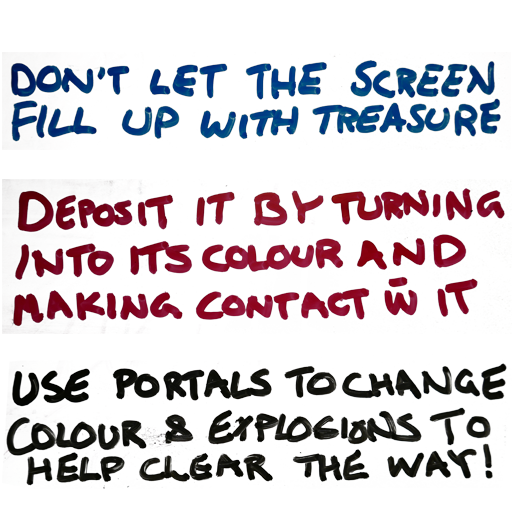 DON'T LET THE SCREEN
FILL UP WITH TREASURE
DEPOSIT IT BY TURNING
INTO ITS COLOUR AND
MAKING CONTACT W̄ IT
USE PORTALS TO CHANGE
COLOUR & EXPLOSIONS TO
HELP CLEAR THE WAY!